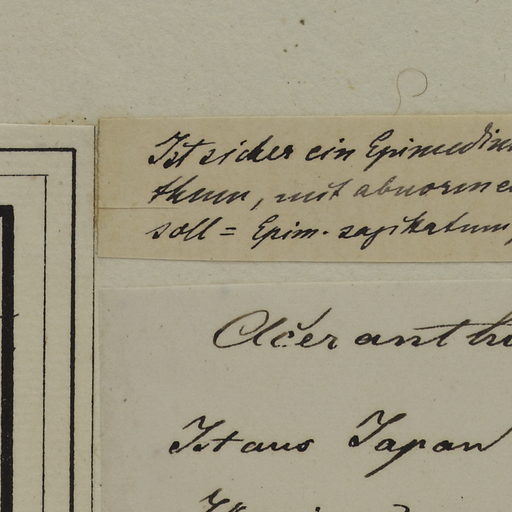 Ist sicher ein Epimedium
thum, mit abnormen
soll = Epim. sagittatum,
Aceranthu
Ist aus Japan